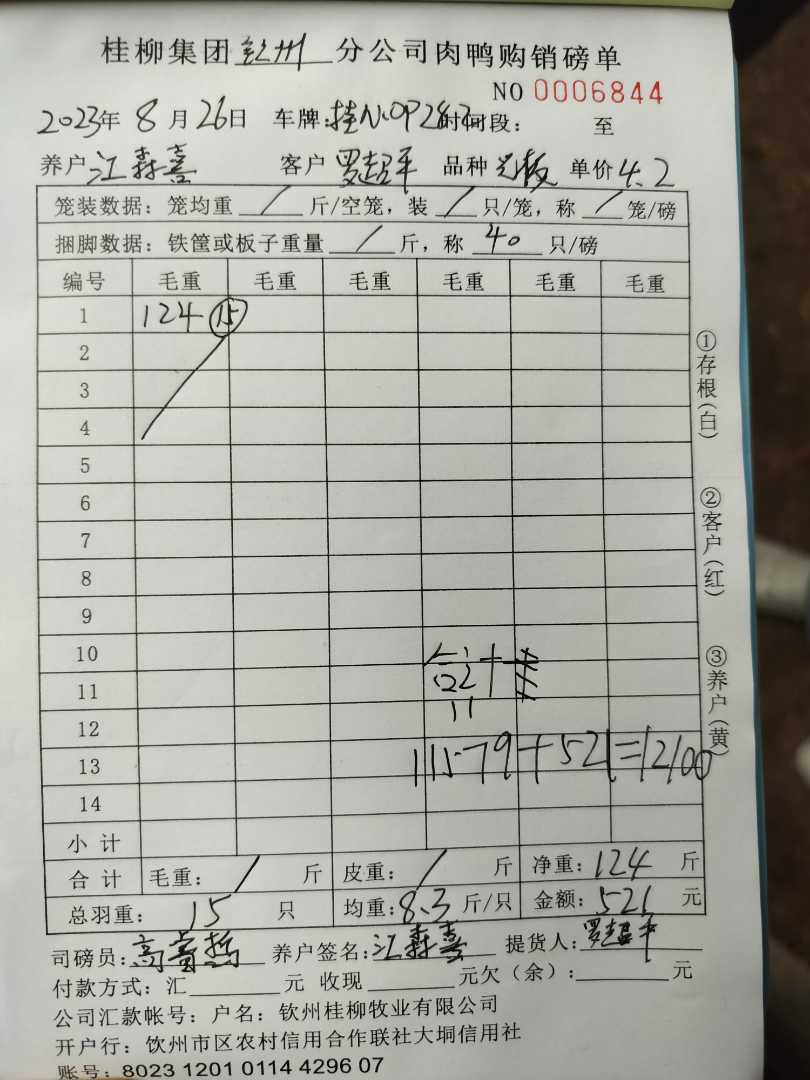 桂柳集团钦州分公司肉鸭购销磅单
NO 0006844
2023年 8月26日 车牌:桂N.0P282 时间段: 至
养户江森喜 客户罗超平 品种 单价4.2
笼装数据:笼均重 / 斤/空笼,装 / 只/笼,称 / 笼/磅
捆脚数据:铁筐或板子重量 / 斤,称 40 只/磅
编号 毛重 毛重 毛重 毛重 毛重 毛重
1 124 15
2
3
4
5
6
7
8
9
10
合计
11
12
11579+521=12100
13
14
小计
合计 毛重: / 斤 皮重: / 斤 净重:124 斤
总羽重: 15 只 均重:8.3斤/只 金额:521 元
司磅员:高 养户签名:江森喜 提货人:罗超平
付款方式:汇 元 收现 元欠(余): 元
公司汇款帐号:户名:钦州桂柳牧业有限公司
开户行:饮州市区农村信用合作联社大垌信用社
账号:8023 1201 0114 4296 07
①存根(白)
②客户(红)
③养户(黄)